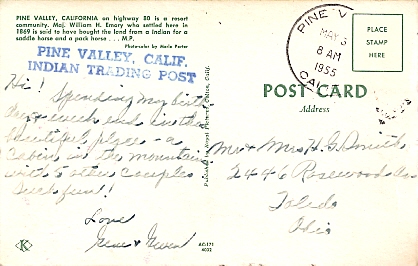 PINE VALLEY, CALIFORNIA on highway 80 is a resort
community. Maj. William H. Emory who settled here in
1869 is said to have bought the land from a Indian for a
saddle horse and a pack horse . . . M.P.
Photo-color by Merle Porter
PINE VALLEY, CALIF.
INDIAN TRADING POST
Hi! Spending my birth
day week end in this
beautiful place - a
cabin in the mountains
with 3 other couples
Such fun!
Love
Gene &
K
AC-171
4032
PINE V
MAY 3
8 AM
1955
CALIF
PLACE
STAMP
HERE
POST CARD
Address
Mr & Mrs H. G.
2446 Rosewood Ave
Toledo
Ohio